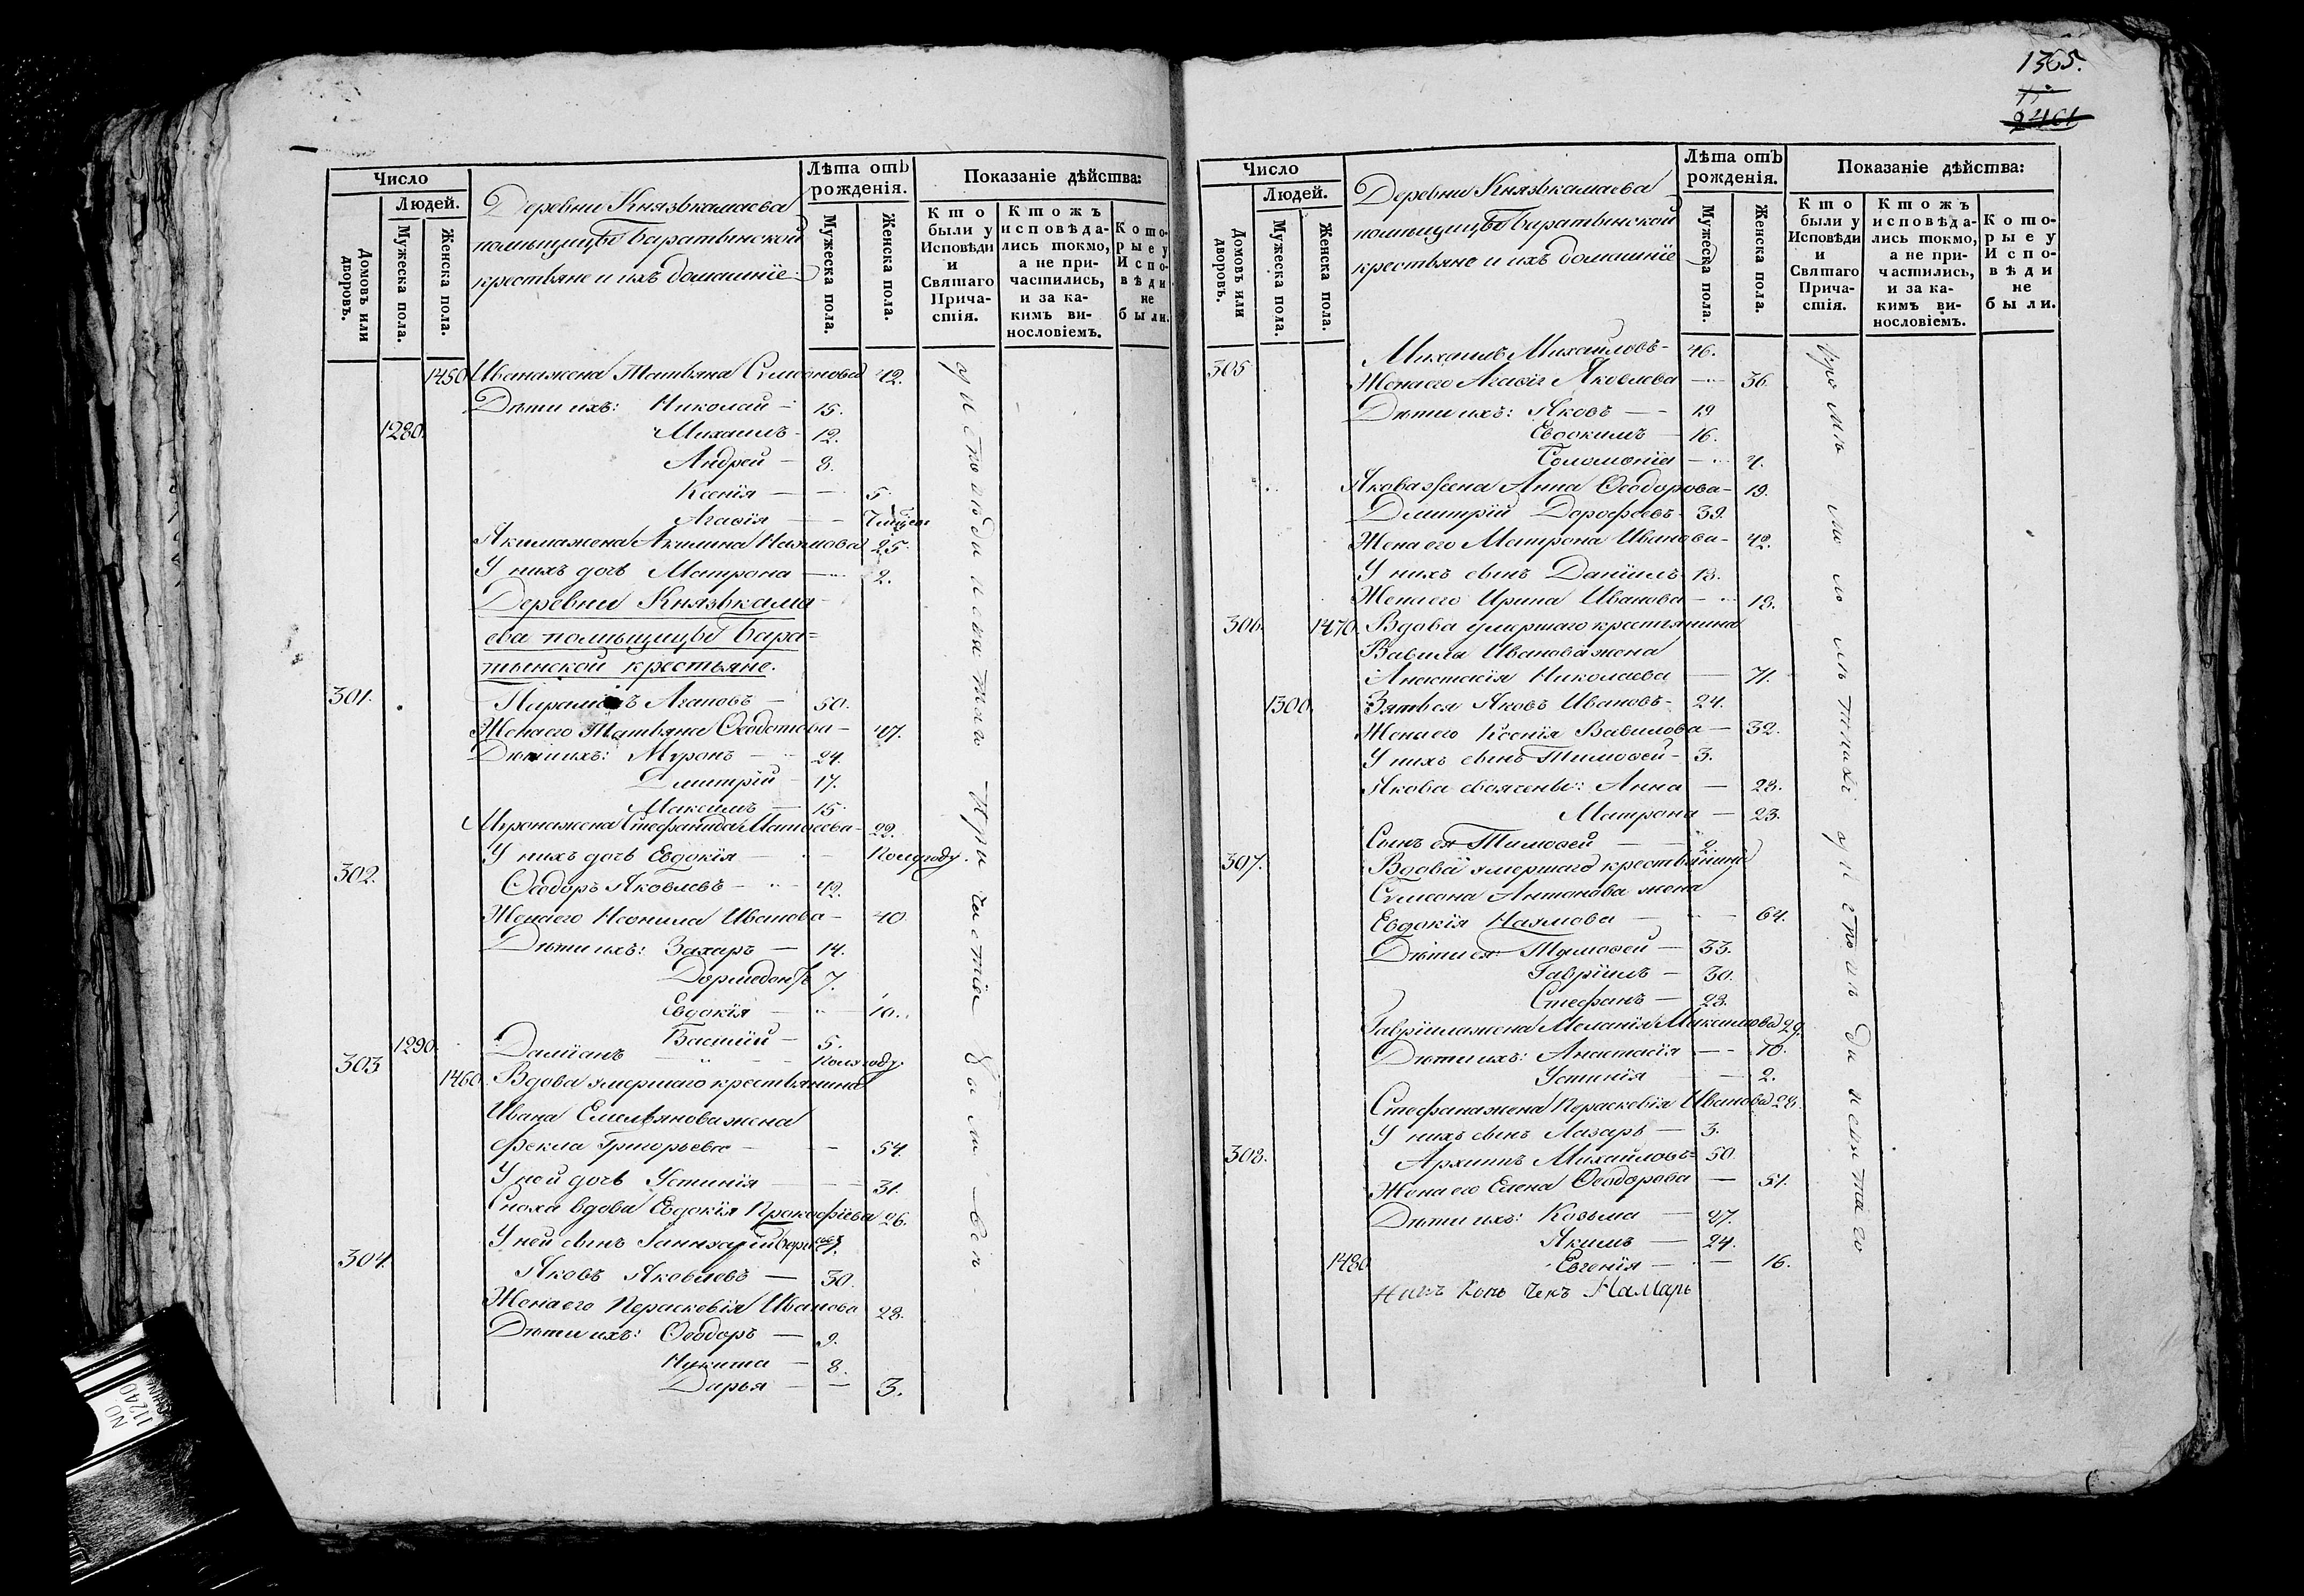 1365.
2401
Число
Людей.
Домовъ или дворовъ.
Мужеска пола.
Женска пола.
Деревни Князькамаева
помѣщицы Баратынской
крестьяне и ихъ домашніе
Лѣта отъ рожденія.
Мужеска пола.
Женска пола.
Показаніе дѣйства:
Кто были у Исповѣди и Святаго Прича-стія.
Ктожъ исповѣда-лись токмо, а не при-частились, и за ка-кимъ ви-нословіемъ.
Кото-рые у Испо-вѣди не были.
1450 Ивана жена Татьяна Симеонова 42.
Дѣти ихъ: Николай 15.
1280. Михаилъ 12.
Андрей 8.
Ксенія 5.
Агафія
Якима жена Акилина Наумова 25.
У нихъ дочь Матрона 2.
Деревни Князькама
ева помѣщицы Бара=
тынской крестьяне.
301. Агаповъ 50.
Жена его Татьяна Ѳеодотова 47.
Дѣти ихъ: Мѵронъ 24.
Дмитрій 17.
Максимъ 15.
Мѵрона жена Стефанида Матѳеева 22.
У нихъ дочь Евдокія полугоду.
302. Ѳеодоръ Яковлевъ 42.
Жена его Неонила Иванова 40.
Дѣти ихъ: Захаръ 14.
Дормедонтъ 7.
Евдокія 10.
Василій 5.
1290. Даміанъ полугоду
303 1460. Вдова умершаго крестьянина
Ивана Емельянова жена
Фекла Григорьева 54.
У ней дочь Устинія 31.
Сноха вдова Евдокія Прокофіева 26.
У ней сынъ
304. Яковъ Яковлевъ 30.
Жена его Параскевія Иванова 28.
Дѣти ихъ: Ѳеодоръ 9.
Никита 8.
Дарья 3.
у исповѣди и святаго причастія были всѣ
Число
Людей.
Домовъ или дворовъ.
Мужеска пола.
Женска пола.
Деревни Князькамаева
помѣщицы Баратынской
крестьяне и ихъ домашніе
Лѣта отъ рожденія.
Мужеска пола.
Женска пола.
Показаніе дѣйства:
Кто были у Исповѣди и Святаго Прича-стія.
Ктожъ исповѣда-лись токмо, а не при-частились, и за ка-кимъ ви-нословіемъ.
Кото-рые у Испо-вѣди не были.
305 Михаилъ Михайловъ 46.
Жена его Агафія Яковлева 36.
Дѣти ихъ: Яковъ 19
Евдокимъ 16.
Соломонія 4.
Якова жена Анна Ѳеодорова 19.
Димитрій Дорофеевъ 39.
Жена его Матрона Иванова 42.
У нихъ сынъ Даніилъ 18.
Жена его Ирина Иванова 18.
306. 1470. Вдова умершаго крестьянина
Вавила Иванова жена
Анастасія Николаева 71.
1300. Зять ея Яковъ Ивановъ 24.
Жена его Ксенія Вавилова 32.
У нихъ сынъ Тимоѳей 3.
Якова свояченьи: Анна 28.
Матрона 23.
Сынъ ея Тимоѳей 2.
307. Вдова умершаго крестьянина
Симеона Антонова жена
Евдокія Наумова 64.
Дѣти ея: Тимоѳей 33.
Гавріилъ 30.
Стефанъ 28.
Гавріила жена Меланія Максимова 29.
Дѣти ихъ: Анастасія 10.
Устинія 2.
Стефана жена Параскевія Иванова 28.
У нихъ сынъ Лазарь 3.
308. Архипъ Михайловъ 50.
Жена его Елена Ѳеодорова 51.
Дѣти ихъ: Козьма 27.
Якимъ 24.
1480 Евгенія 16.
Памарь
кромѣ малолѣтнихъ у исповѣди и святаго